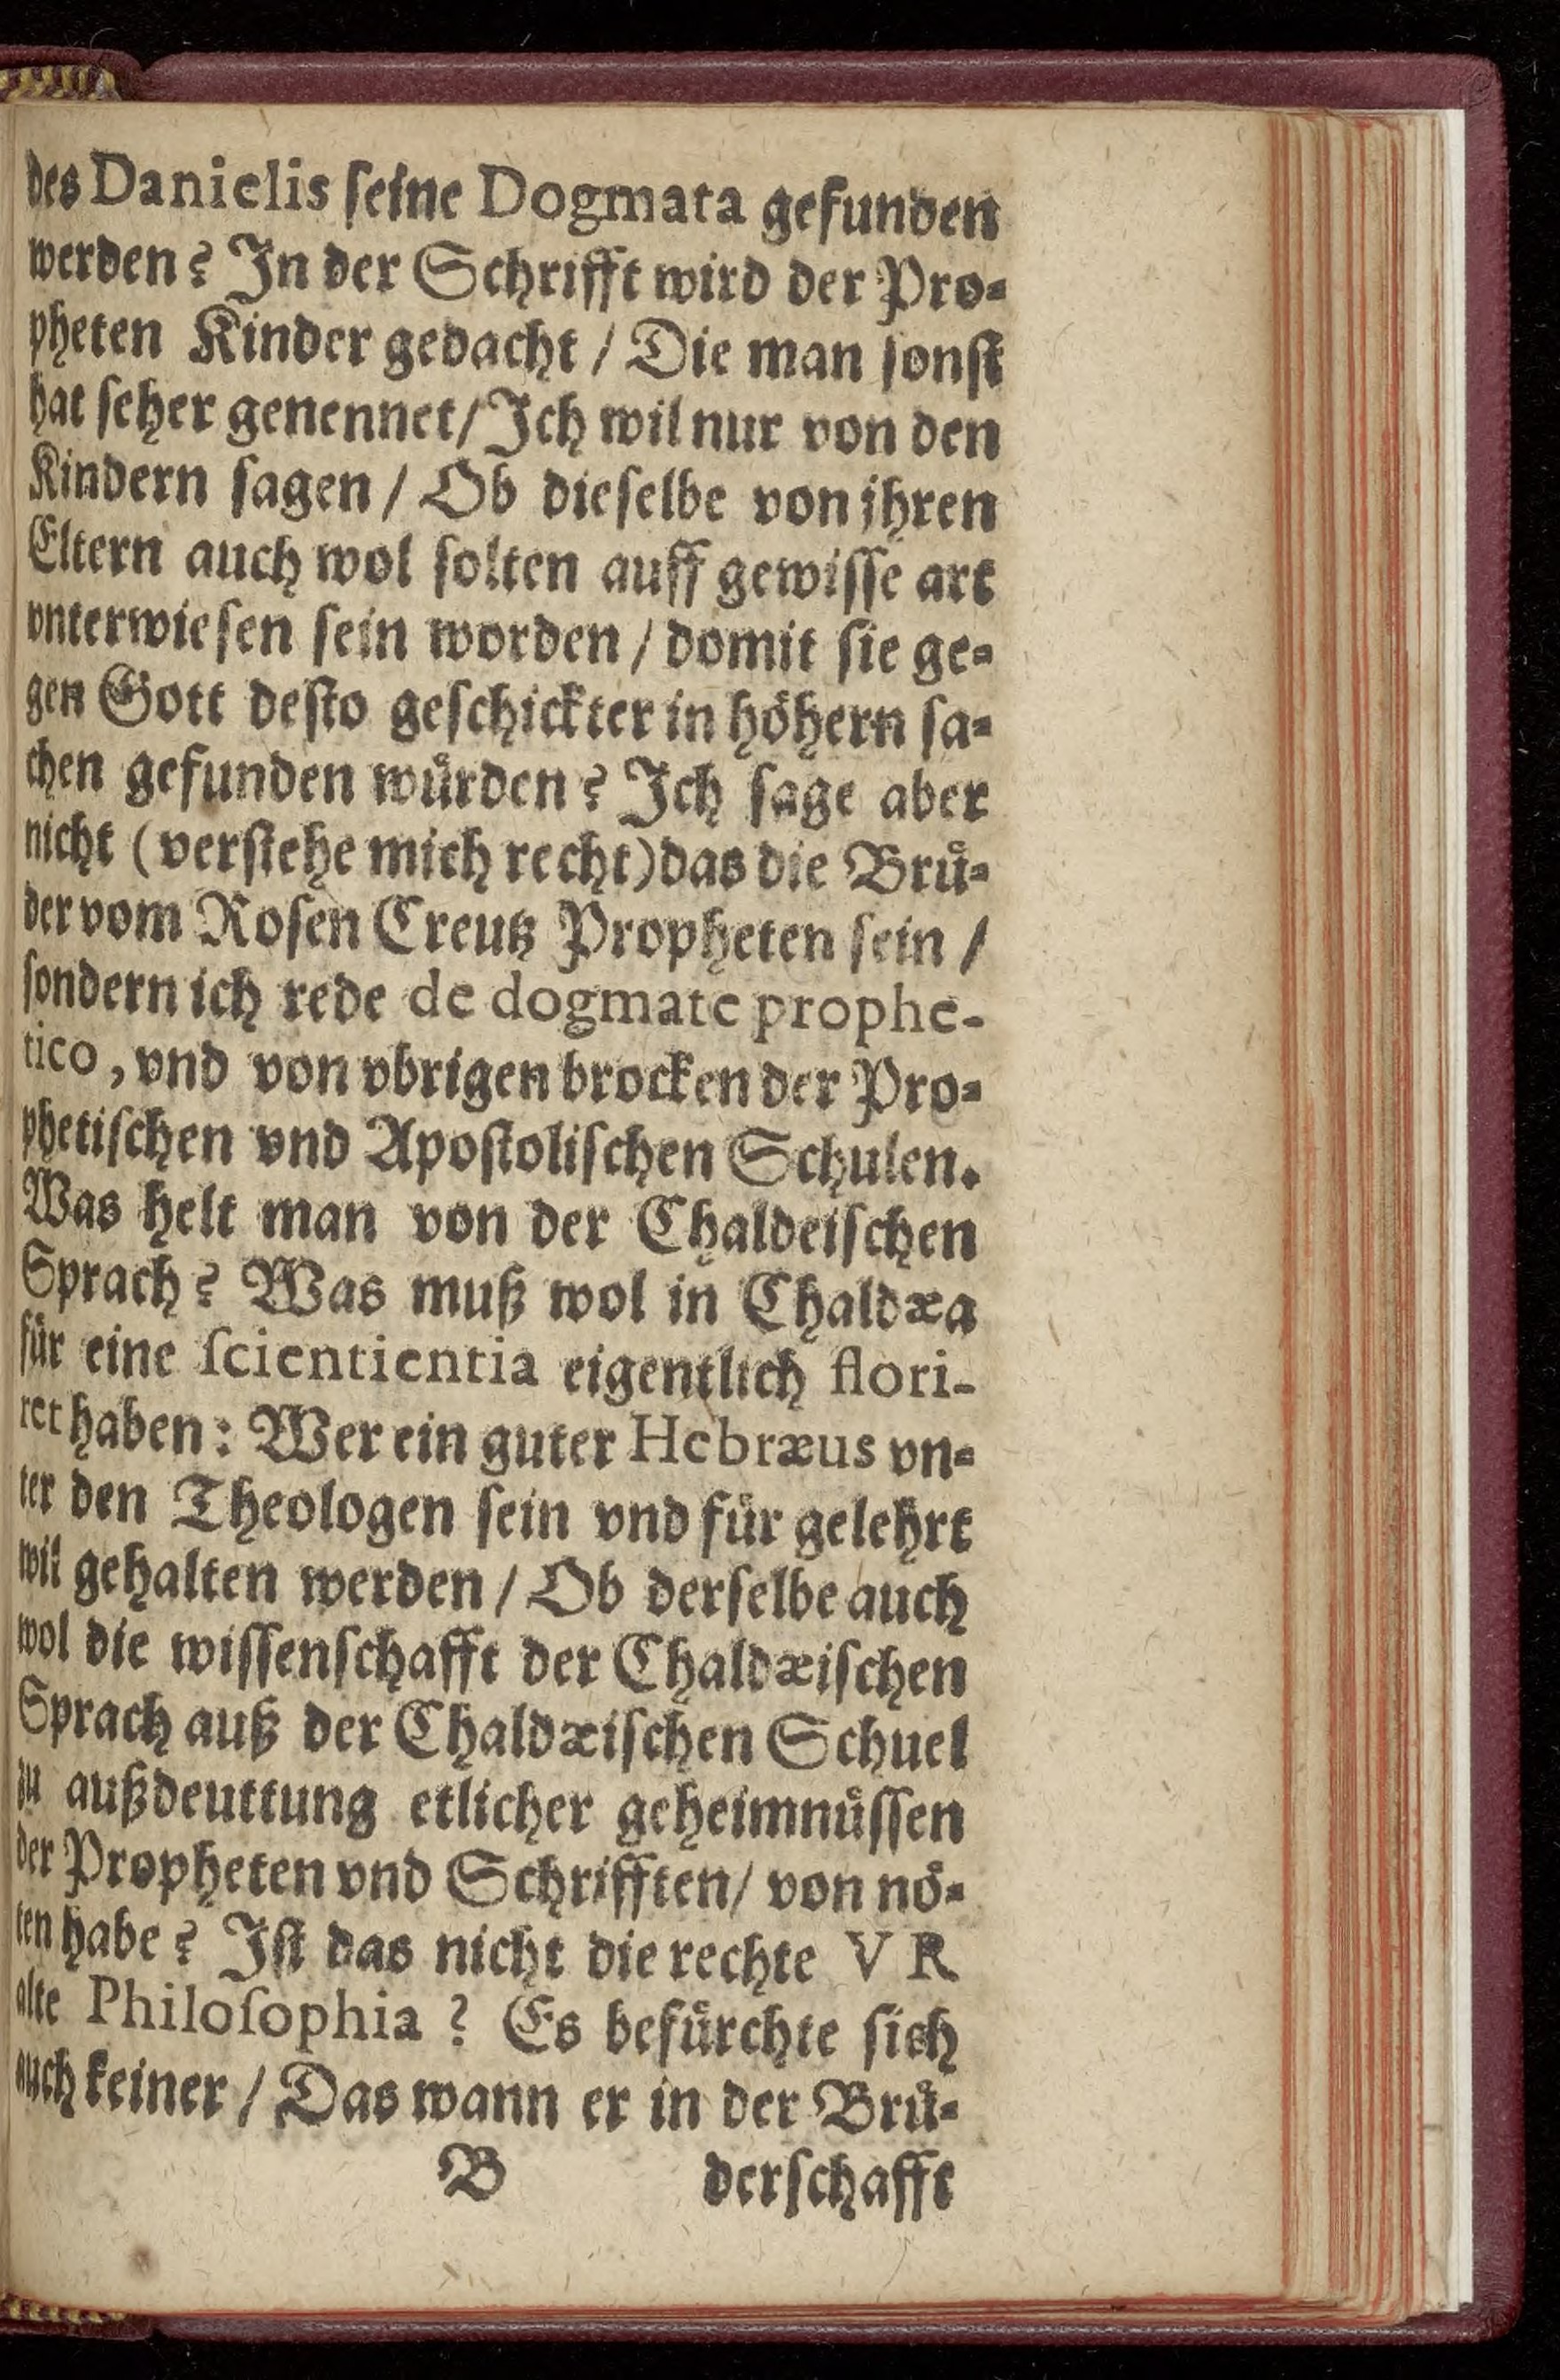 des Danielis ſeine Dogmata gefunden
werden? In der Schrifft wird der Pro-
pheten Kinder gedacht / Die man ſonſt
hat ſeher genennet / Ich wil nur von den
Kindern ſagen / Ob dieſelbe von jhren
Eltern auch wol ſolten auff gewiſſe art
vnterwieſen ſein worden / domit ſie ge-
gen Gott deſto geſchickter in hoͤhern ſa-
chen gefunden wuͤrden? Ich ſage aber
nicht (verſtehe mich recht) das die Bruͤ-
der vom Roſen Creutz Propheten ſein /
ſondern ich rede de dogmate prophe-
tico, vnd von vbrigen brocken der Pro-
phetiſchen vnd Apoſtoliſchen Schulen.
Was helt man von der Chaldeiſchen
Sprach? Was muß wol in Chaldæa
fuͤr eine ſcientientia eigentlich flori-
ret haben: Wer ein guter Hebræus vn-
ter den Theologen ſein vnd fuͤr gelehrt
wil gehalten werden / Ob derſelbe auch
wol die wiſſenſchafft der Chaldæiſchen
Sprach auß der Chaldæiſchen Schuel
zu außdeuttung etlicher geheimnuͤſſen
der Propheten vnd Schrifften / von noͤ-
ten habe? Iſt das nicht die rechte V R
alte Philoſophia? Es befuͤrchte ſich
auch keiner / Das wann er in der Bruͤ-
B derſchafft